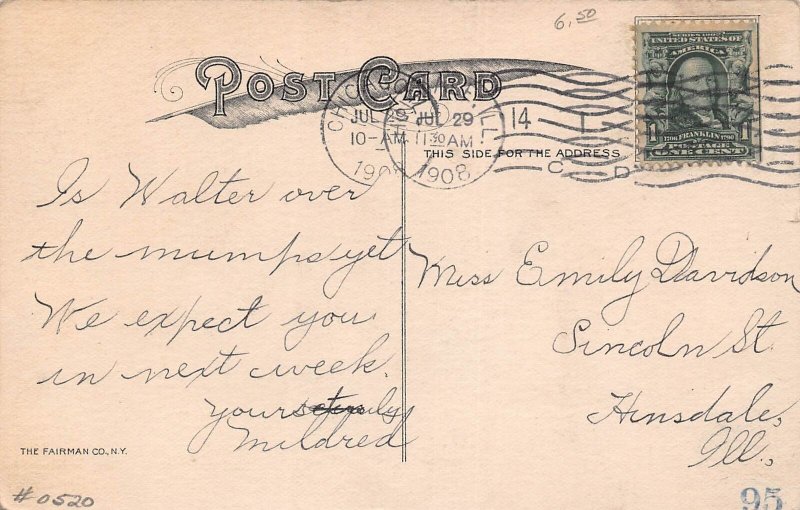 6.50
SERIES 1902
UNITED STATES OF
AMERICA
1 1
1706 FRANKLIN 1790
POSTAGE
ONE CENT
POST CARD
CHICAGO, ILL.
JUL 29
10-AM
1908
JUL 29
11 30 AM
1908
14
C D
THIS SIDE FOR THE ADDRESS
Is Walter over
the mumps yet
We expect you
in next week.
Yours
Mildred
Miss Emily Davidson
Lincoln St
Hinsdale,
Ill.,
THE FAIRMAN CO., N.Y.
#0520
95